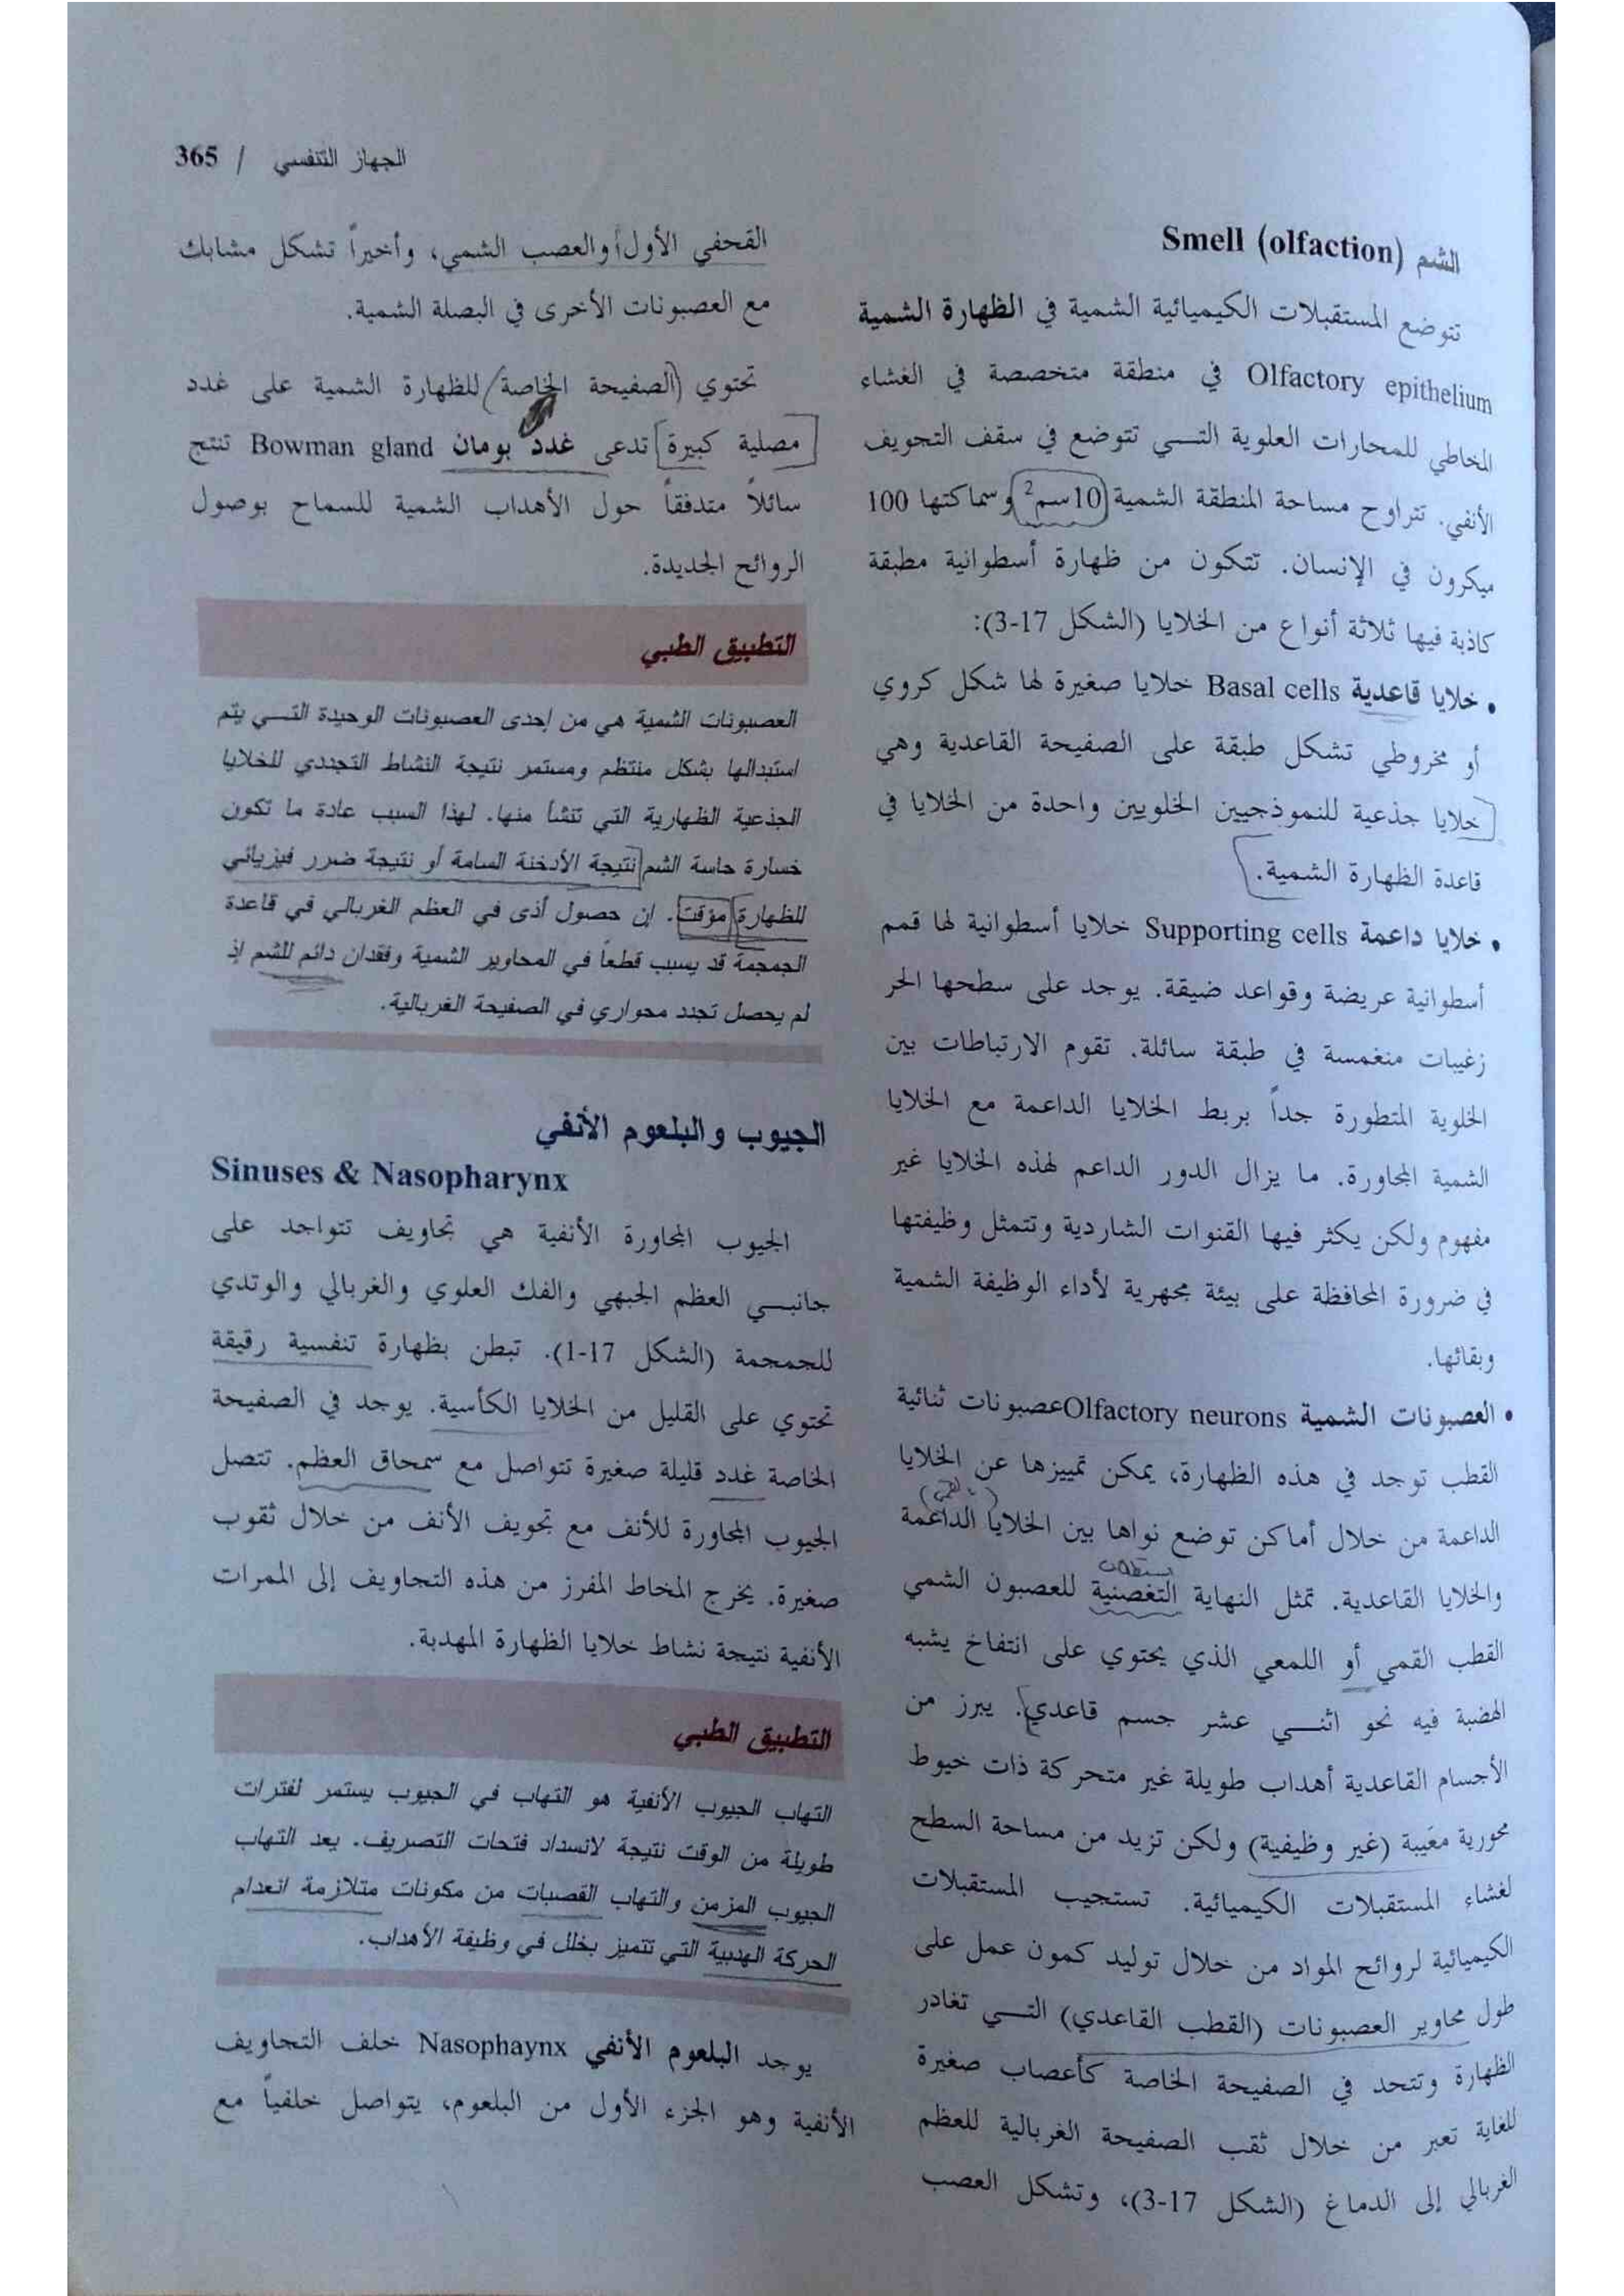 الجهاز التنفسي / 365
الشم Smell (olfaction)
تتوضع المستقبلات الكيميائية الشمية في الظهارة الشمية
Olfactory epithelium في منطقة متخصصة في الغشاء
المخاطي للمحارات العلوية التـــي تتوضع في سقف التجويف
الأنفي. تتراوح مساحة المنطقة الشمية 10سم2 وسماكتها 100
ميكرون في الإنسان. تتكون من ظهارة أسطوانية مطبقة
كاذبة فيها ثلاثة أنواع من الخلايا (الشكل 17-3):
• خلايا قاعدية Basal cells خلايا صغيرة لها شكل كروي
أو مخروطي تشكل طبقة على الصفيحة القاعدية وهي
خلايا جذعية للنموذجيين الخلويين واحدة من الخلايا في
قاعدة الظهارة الشمية.
• خلايا داعمة Supporting cells خلايا أسطوانية لها قمم
أسطوانية عريضة وقواعد ضيقة. يوجد على سطحها الحر
زغيبات منغمسة في طبقة سائلة. تقوم الارتباطات بين
الخلوية المتطورة جداً بربط الخلايا الداعمة مع الخلايا
الشمية المجاورة. ما يزال الدور الداعم لهذه الخلايا غير
مفهوم ولكن يكثر فيها القنوات الشاردية وتتمثل وظيفتها
في ضرورة المحافظة على بيئة مجهرية لأداء الوظيفة الشمية
وبقائها.
• العصبونات الشمية Olfactory neurons عصبونات ثنائية
القطب توجد في هذه الظهارة، يمكن تمييزها عن الخلايا
الداعمة من خلال أماكن توضع نواها بين الخلايا الداعمة
والخلايا القاعدية. تمثل النهاية التغصنية للعصبون الشمي
القطب القمي أو اللمعي الذي يحتوي على انتفاخ يشبه
الهضبة فيه نحو اثنـــي عشر جسم قاعدي. يبرز من
الأجسام القاعدية أهداب طويلة غير متحركة ذات خيوط
محورية معَيبة (غير وظيفية) ولكن تزيد من مساحة السطح
لغشاء المستقبلات الكيميائية. تستجيب المستقبلات
الكيميائية لروائح المواد من خلال توليد كمون عمل على
طول محاوير العصبونات (القطب القاعدي) التـــي تغادر
الظهارة وتتحد في الصفيحة الخاصة كأعصاب صغيرة
للغاية تعبر من خلال ثقب الصفيحة الغربالية للعظم
الغربالي إلى الدماغ (الشكل 17-3)، وتشكل العصب
القحفي الأول والعصب الشمي، وأخيراً تشكل مشابك
مع العصبونات الأخرى في البصلة الشمية.
تحتوي الصفيحة الخاصة للظهارة الشمية على غدد
مصلية كبيرة تدعى غدد بومان Bowman gland تنتج
سائلاً متدفقاً حول الأهداب الشمية للسماح بوصول
الروائح الجديدة.
التطبيق الطبي
العصبونات الشمية هي من إحدى العصبونات الوحيدة التـــي يتم
استبدالها بشكل منتظم ومستمر نتيجة النشاط التجددي للخلايا
الجذعية الظهارية التي تنشأ منها. لهذا السبب عادة ما تكون
خسارة حاسة الشم نتيجة الأدخنة السامة أو نتيجة ضرر فيزيائي
للظهارة مؤقت. إن حصول أذى في العظم الغربالي في قاعدة
الجمجمة قد يسبب قطعاً في المحاوير الشمية وفقدان دائم للشم إذ
لم يحصل تجدد محواري في الصفيحة الغربالية.
الجيوب والبلعوم الأنفي
Sinuses & Nasopharynx
الجيوب المجاورة الأنفية هي تجاويف تتواجد على
جانبـــي العظم الجبهي والفك العلوي والغربالي والوتدي
للجمجمة (الشكل 17-1). تبطن بظهارة تنفسية رقيقة
تحتوي على القليل من الخلايا الكأسية. يوجد في الصفيحة
الخاصة غدد قليلة صغيرة تتواصل مع سمحاق العظم. تتصل
الجيوب المجاورة للأنف مع تجويف الأنف من خلال ثقوب
صغيرة. يخرج المخاط المفرز من هذه التجاويف إلى الممرات
الأنفية نتيجة نشاط خلايا الظهارة المهدبة.
التطبيق الطبي
التهاب الجيوب الأنفية هو التهاب في الجيوب يستمر لفترات
طويلة من الوقت نتيجة لانسداد فتحات التصريف. يعد التهاب
الجيوب المزمن والتهاب القصبات من مكونات متلازمة انعدام
الحركة الهدبية التي تتميز بخلل في وظيفة الأهداب.
يوجد البلعوم الأنفي Nasophaynx خلف التجاويف
الأنفية وهو الجزء الأول من البلعوم، يتواصل خلفياً مع